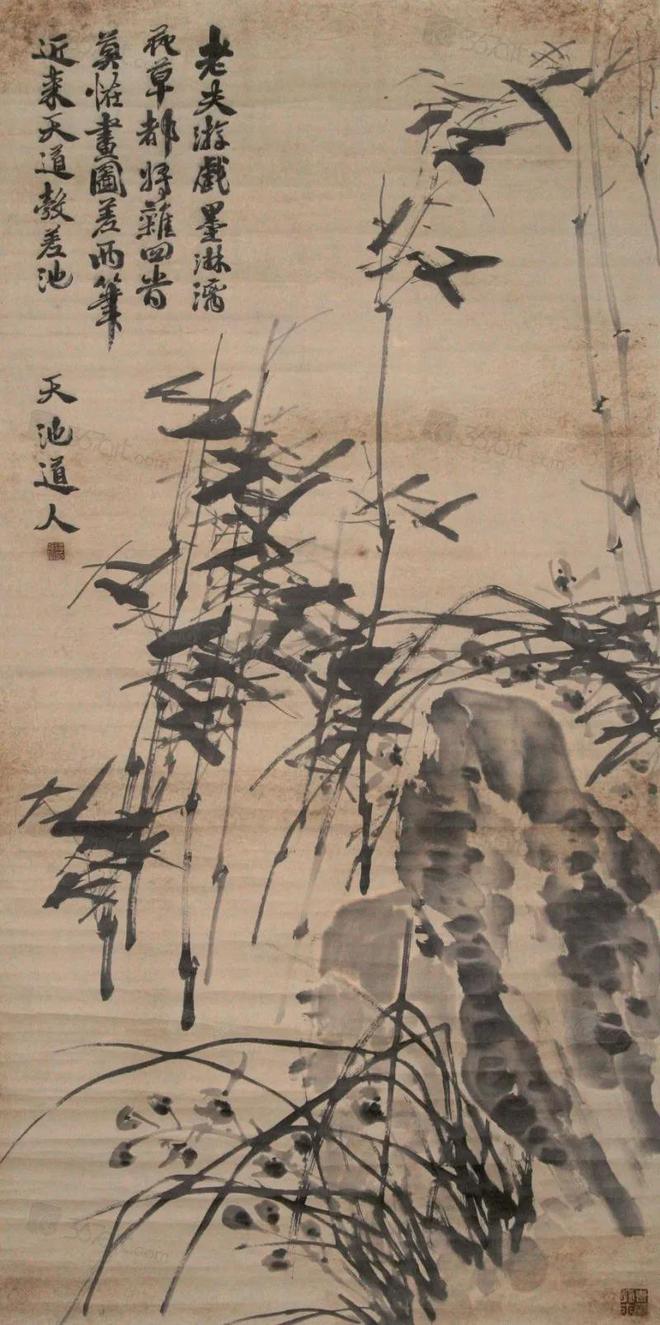 老夫游戲墨淋漓
花草都將雜四時
莫怪畫圖差兩筆
近來天道教差池
天池道人